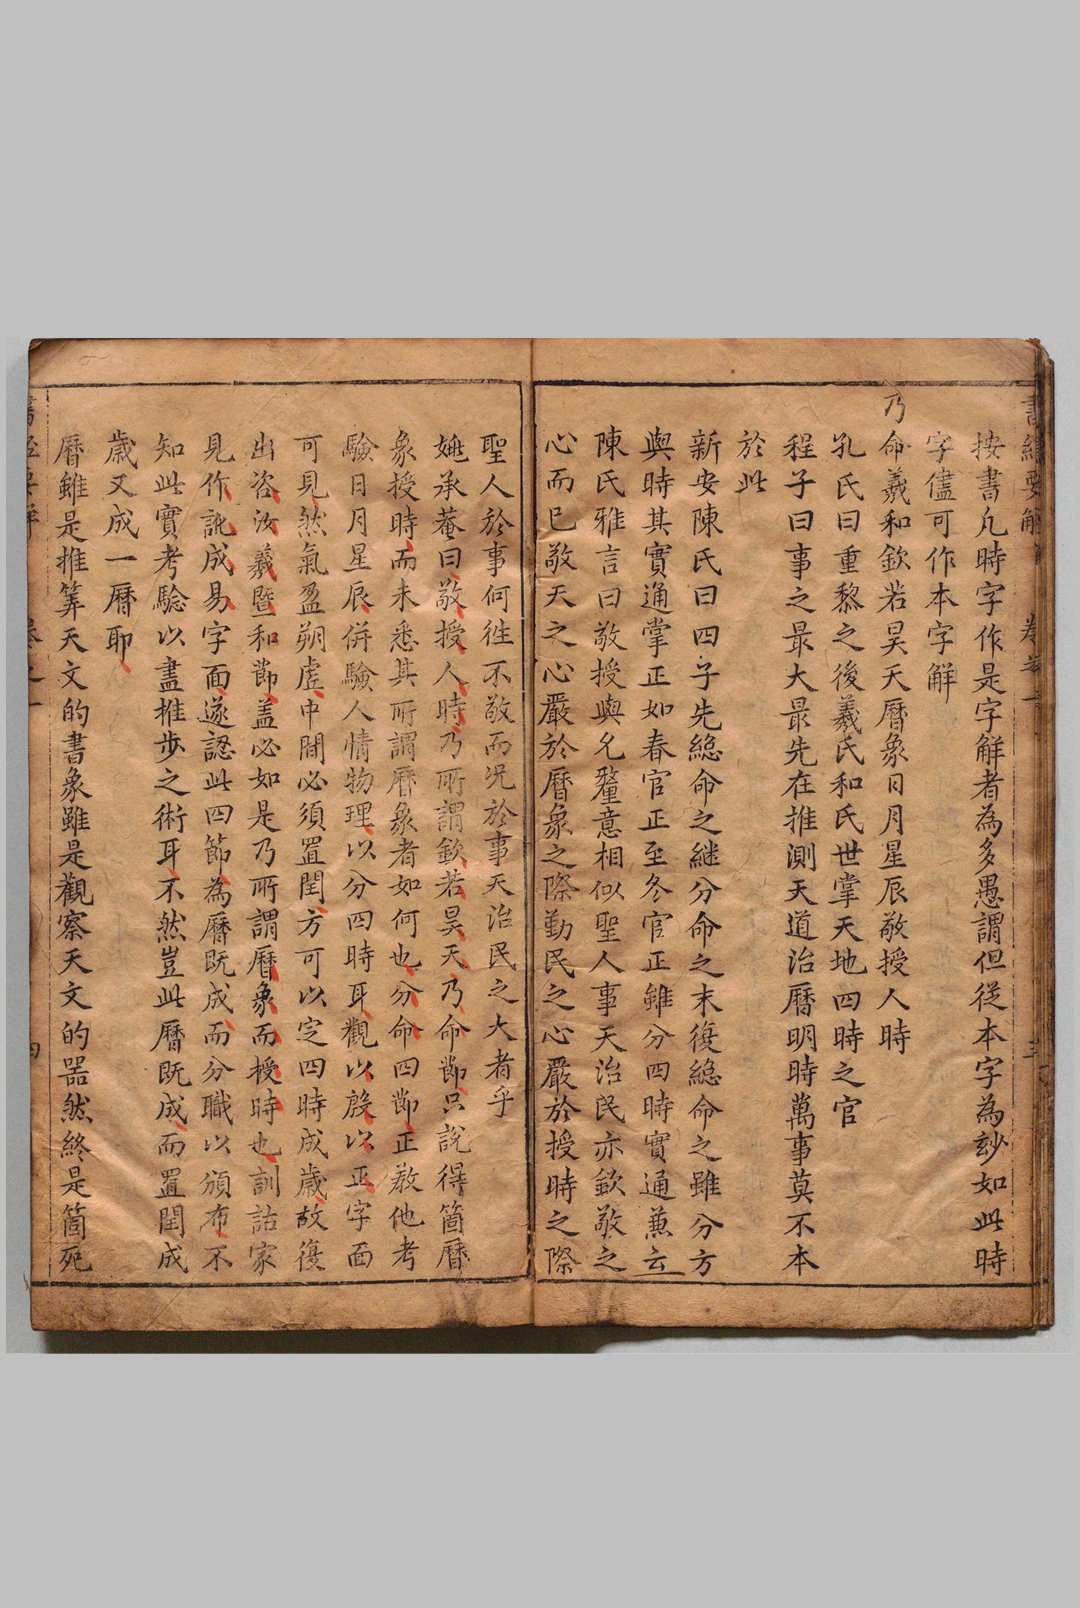 按書凡時字作是字解者為多愚謂但從本字為玅如此時
字儘可作本字解
乃命羲和欽若昊天曆象日月星辰敬授人時
孔氏曰重黎之後羲氏和氏世掌天地四時之官
程子曰事之最大最先在推測天道治曆明時萬事莫不本
於此
新安陳氏曰四子先緫命之継分命之末復緫命之雖分方
與時其實通掌正如春官正至冬官正雖分四時實通蕙云
陳氏雅言曰敬授與允釐意相似聖人事天治民亦欽敬之
心而已敬天之心嚴於曆象之際勤民之心嚴於授時之際
聖人於事何徃不敬而况於事天治民之大者乎
姚承菴曰敬授人時乃所謂欽若昊天乃命節只說得箇曆
象授時而未悉其所謂曆象者如何也分命四節正敎他考
驗日月星辰併驗人情物理以分四時耳觀以殷以正字面
可見然氣盈朔虛中間必須置閏方可以定四時成歲故復
出咨汝羲暨和節盖必如是乃所謂曆象而授時也訓詁家
見作訛成易字面遂認此四節為曆既成而分職以頒布不
知此實考驗以盡推步之術耳不然豈此曆既成而置閏成
歲又成一曆耶
曆雖是推筭天文的書象雖是觀察天文的器然終是箇死
書經要解 卷之一 三
書經要解 卷之一 四